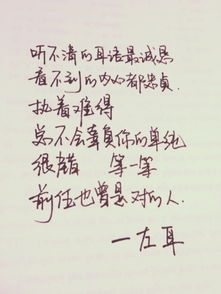 听不清的耳语最诚恳
看不到的内心都忠贞.
执着难得
总不会辜负你的单纯
很错 等一等
前任也曾是对的人.
一左耳